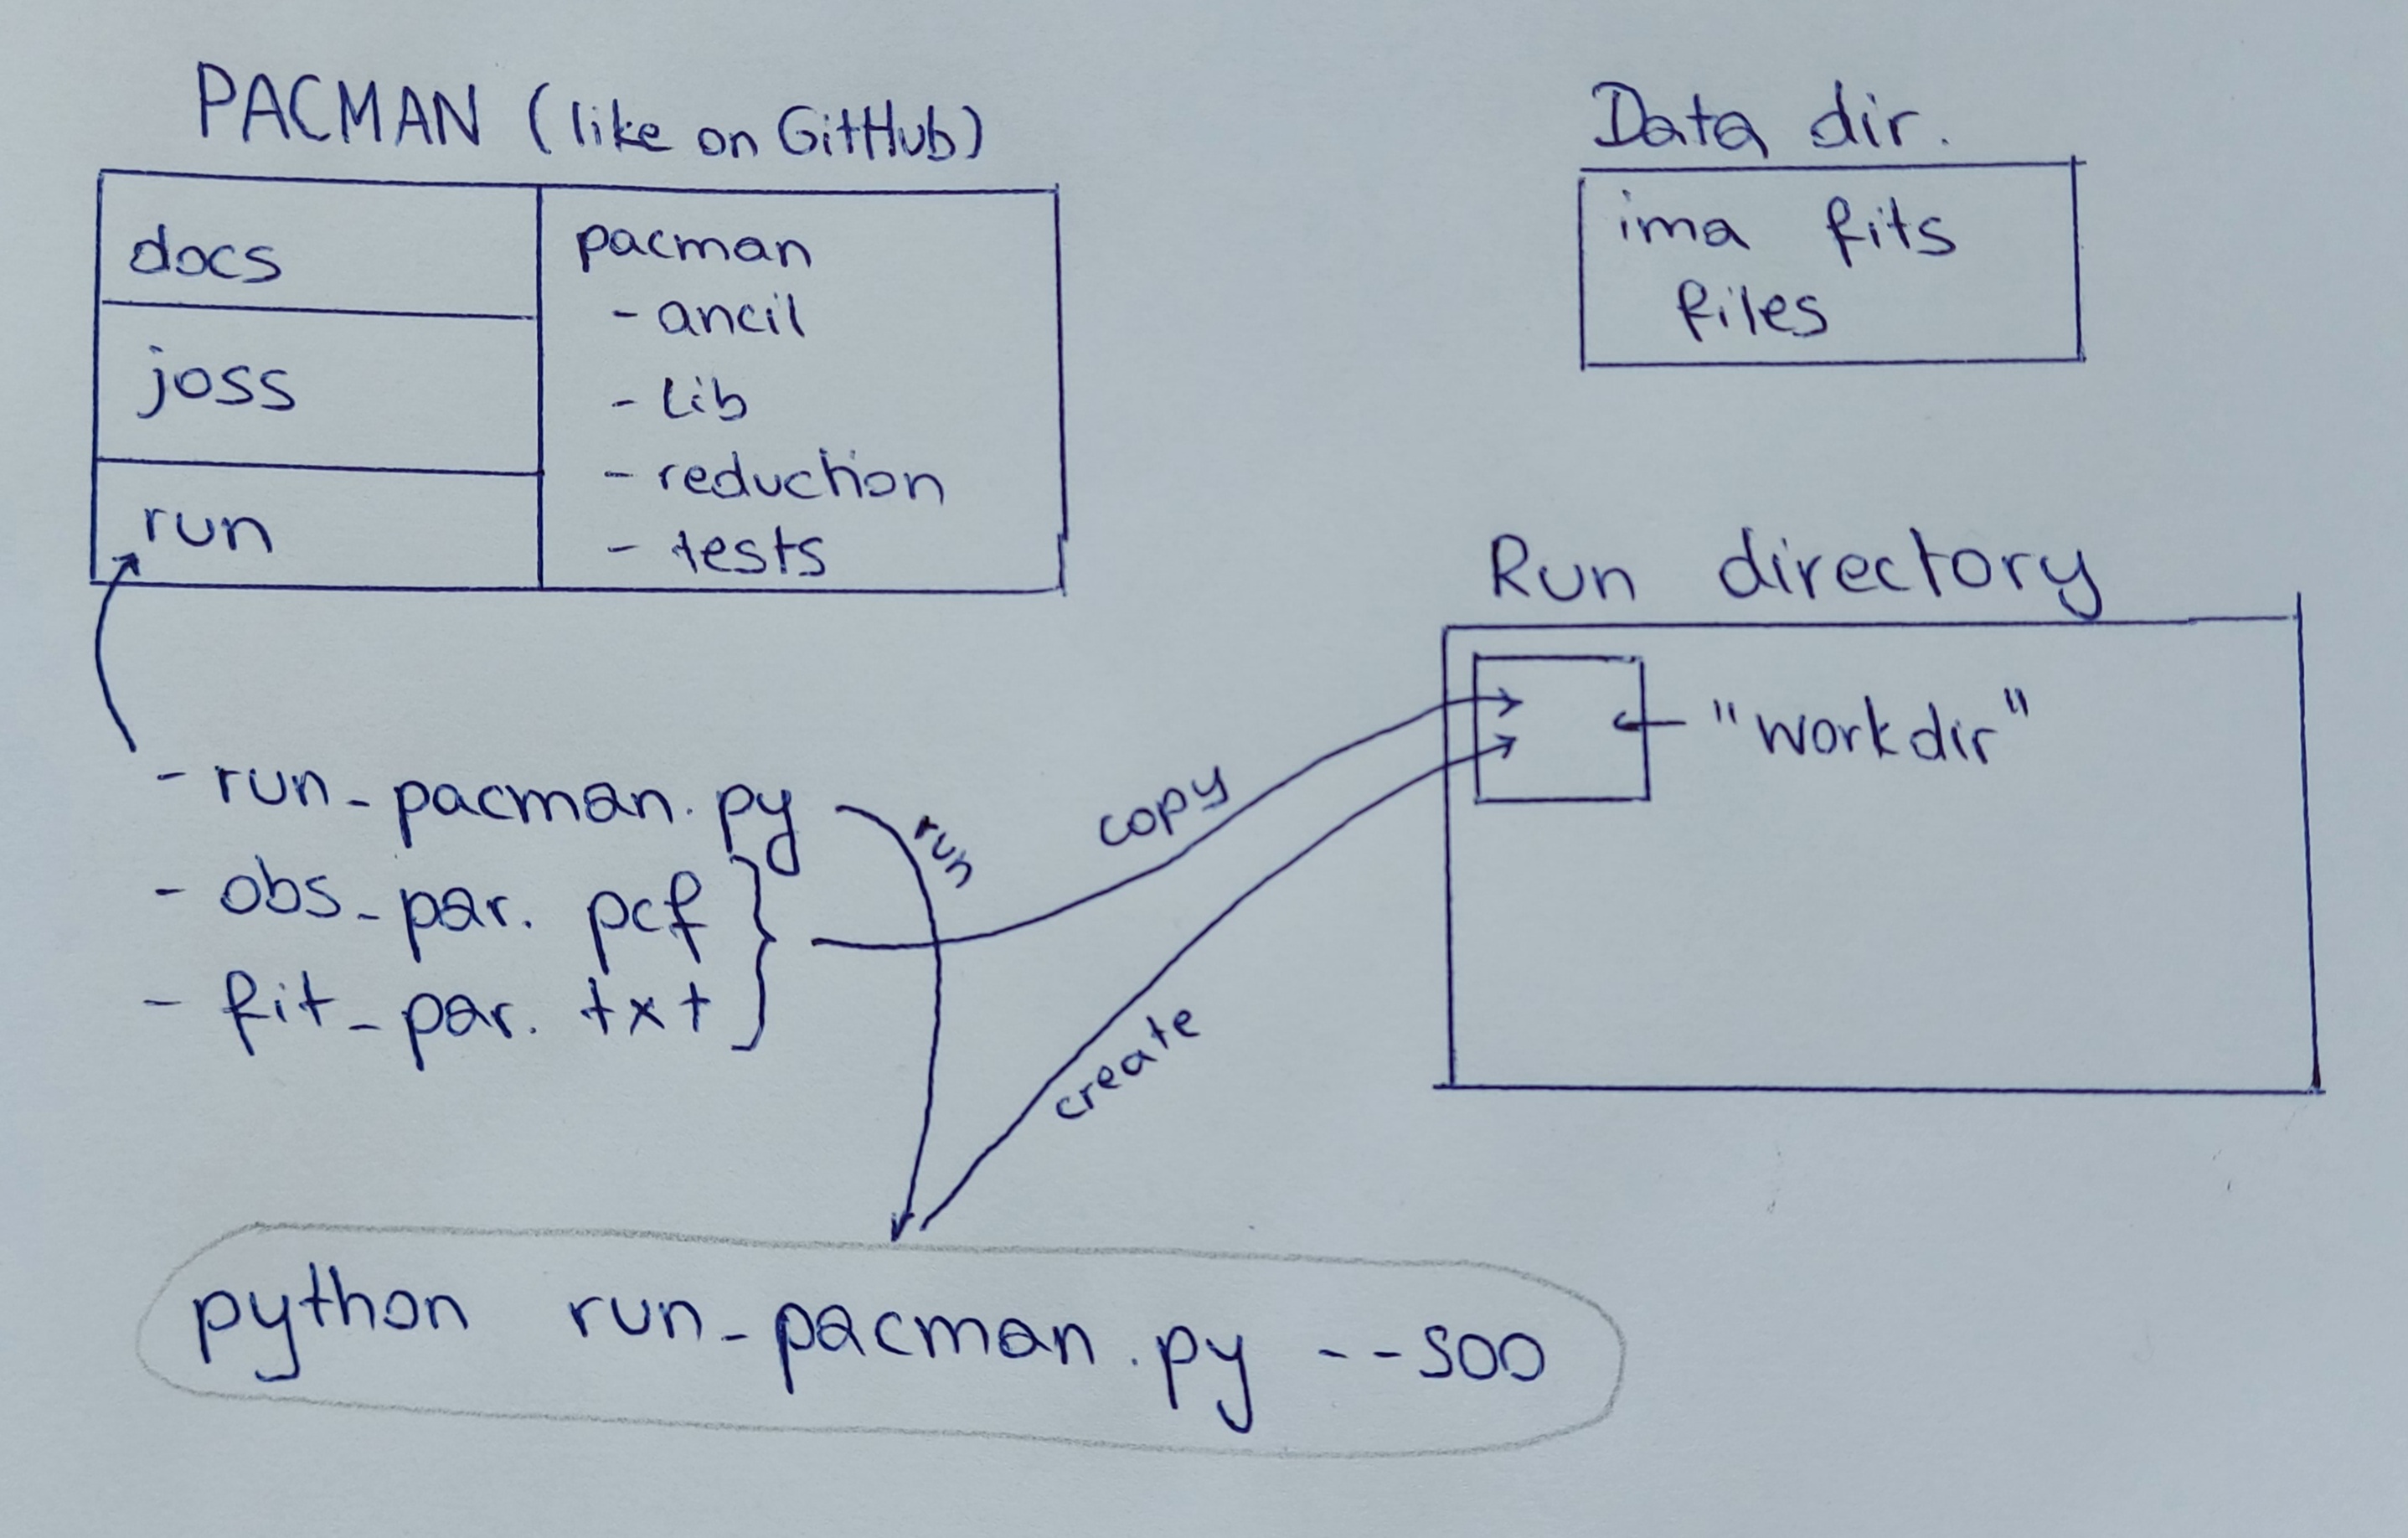 PACMAN (like on GitHub)
docs
joss
run
pacman
- ancil
- lib
- reduction
- tests
Data dir.
ima fits
files
Run directory
"workdir"
- run_pacman.py
- obs_par.pcf
- fit_par.txt
run
copy
create
python run_pacman.py --s00